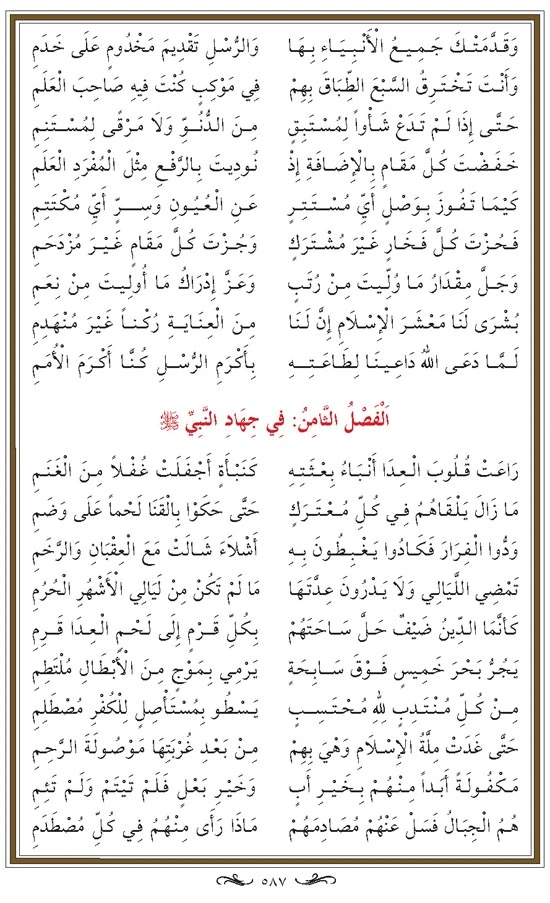 وَقَدَّمَتْكَ جَمِيعُ الْأَنْبِيَاءِ بِهَا وَالرُّسْلِ تَقْدِيمَ مَخْدُومٍ عَلَى خَدَمِ
وَأَنْتَ تَخْتَرِقُ السَّبْعَ الطِّبَاقَ بِهِمْ فِي مَوْكِبٍ كُنْتَ فِيهِ صَاحِبَ الْعَلَمِ
حَتَّى إِذَا لَمْ تَدَعْ شَأْواً لِمُسْتَبِقٍ مِنَ الدُّنُوِّ وَلَا مَرْقًى لِمُسْتَنِمِ
خَفَضْتَ كُلَّ مَقَامٍ بِالْإِضَافَةِ إِذْ نُودِيتَ بِالرَّفْعِ مِثْلَ الْمُفْرَدِ الْعَلَمِ
كَيْمَا تَفُوزَ بِوَصْلٍ أَيِّ مُسْتَتِرٍ عَنِ الْعُيُونِ وَسِرٍّ أَيِّ مُكْتَتِمِ
فَحُزْتَ كُلَّ فَخَارٍ غَيْرَ مُشْتَرَكٍ وَجُزْتَ كُلَّ مَقَامٍ غَيْرَ مُزْدَحَمِ
وَجَلَّ مِقْدَارُ مَا وُلِّيتَ مِنْ رُتَبٍ وَعَزَّ إِدْرَاكُ مَا أُولِيتَ مِنْ نِعَمِ
بُشْرَى لَنَا مَعْشَرَ الْإِسْلَامِ إِنَّ لَنَا مِنَ الْعِنَايَةِ رُكْناً غَيْرَ مُنْهَدِمِ
لَمَّا دَعَى اللهُ دَاعِينَا لِطَاعَتِهِ بِأَكْرَمِ الرُّسْلِ كُنَّا أَكْرَمَ الْأُمَمِ
اَلْفَصْلُ الثَّامِنُ: فِي جِهَادِ النَّبِيِّ ﷺ
رَاعَتْ قُلُوبَ الْعِدَا أَنْبَاءُ بِعْثَتِهِ كَنَبْأَةٍ أَجْفَلَتْ غُفْلاً مِنَ الْغَنَمِ
مَا زَالَ يَلْقَاهُمُ فِي كُلِّ مُعْتَرَكٍ حَتَّى حَكَوْا بِالْقَنَا لَحْماً عَلَى وَضَمِ
وَدُّوا الْفِرَارَ فَكَادُوا يَغْبِطُونَ بِهِ أَشْلَاءَ شَالَتْ مَعَ الْعِقْبَانِ وَالرَّخَمِ
تَمْضِي اللَّيَالِي وَلَا يَدْرُونَ عِدَّتَهَا مَا لَمْ تَكُنْ مِنْ لَيَالِي الْأَشْهُرِ الْحُرُمِ
كَأَنَّمَا الدِّينُ ضَيْفٌ حَلَّ سَاحَتَهُمْ بِكُلِّ قَرْمٍ إِلَى لَحْمِ الْعِدَا قَرِمِ
يَجُرُّ بَحْرَ خَمِيسٍ فَوْقَ سَابِحَةٍ يَرْمِي بِمَوْجٍ مِنَ الْأَبْطَالِ مُلْتَطِمِ
مِنْ كُلِّ مُنْتَدِبٍ لِلهِ مُحْتَسِبٍ يَسْطُو بِمُسْتَأْصِلٍ لِلْكُفْرِ مُصْطَلِمِ
حَتَّى غَدَتْ مِلَّةُ الْإِسْلَامِ وَهْيَ بِهِمْ مِنْ بَعْدِ غُرْبَتِهَا مَوْصُولَةَ الرَّحِمِ
مَكْفُولَةً أَبَداً مِنْهُمْ بِخَيْرِ أَبٍ وَخَيْرِ بَعْلٍ فَلَمْ تَيْتَمْ وَلَمْ تَئِمِ
هُمُ الْجِبَالُ فَسَلْ عَنْهُمْ مُصَادِمَهُمْ مَاذَا رَأَى مِنْهُمُ فِي كُلِّ مُصْطَدَمِ
٥٨٧